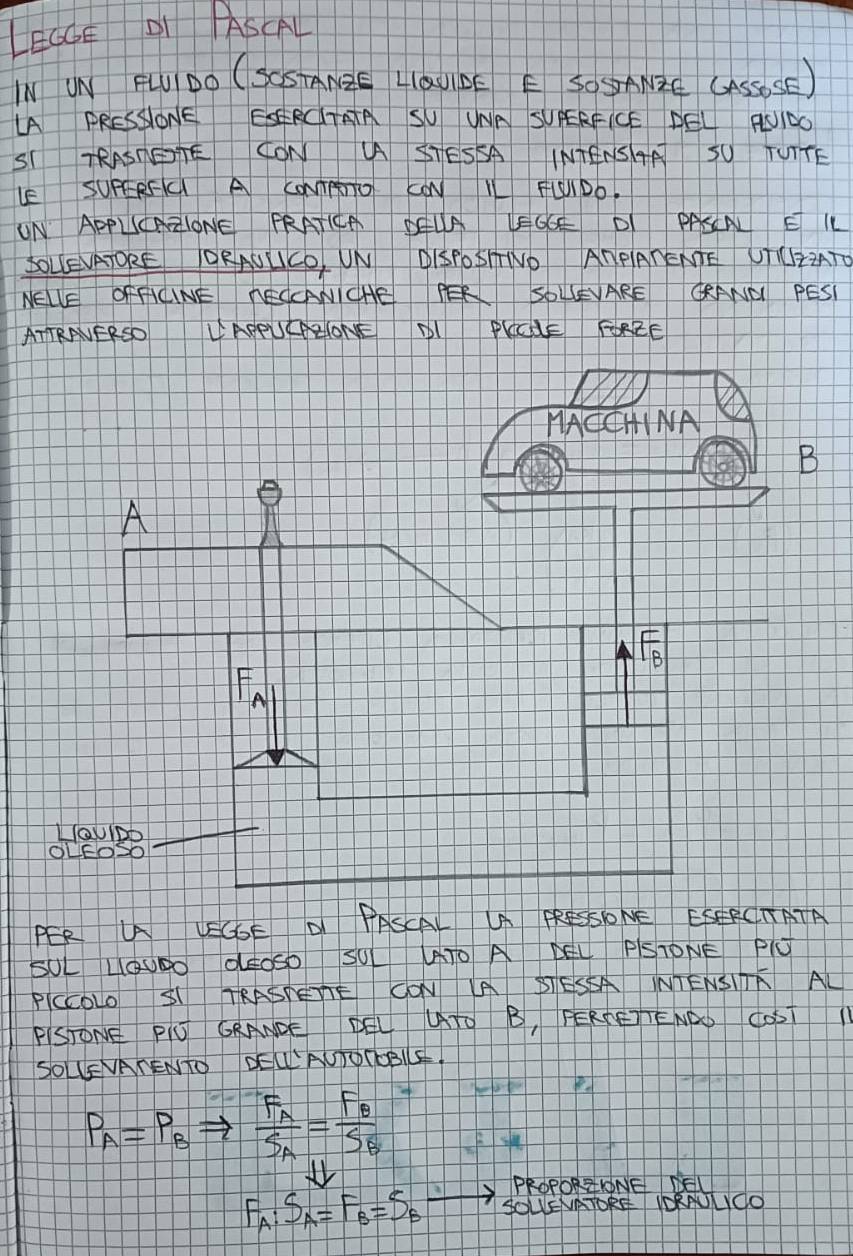 LEGGE DI PASCAL
IN UN FLUIDO (SOSTANZE LIQUIDE E SOSTANZE GASSOSE)
LA PRESSIONE ESERCITATA SU UNA SUPERFICE DEL FLUIDO
SI TRASMETTE CON LA STESSA INTENSITÀ SU TUTTE
LE SUPERFICI A CONTATTO CON IL FLUIDO.
UN APPLICAZIONE PRATICA DELLA LEGGE DI PASCAL E IL
SOLLEVATORE IDRAULICO, UN DISPOSITIVO AMPIAMENTE UTILIZZATO
NELLE OFFICINE MECCANICHE PER SOLLEVARE GRANDI PESI
ATTRAVERSO L'APPLICAZIONE DI PICCOLE FORZE
MACCHINA
B
A
F_B
F_A
LIQUIDO
OLEOSO
PER LA LEGGE DI PASCAL LA PRESSIONE ESERCITATA
SUL LIQUDO OLEOSO SUL LATO A DEL PISTONE PIÙ
PICCOLO SI TRASMETTE CON LA STESSA INTENSITÀ AL
PISTONE PIÙ GRANDE DEL LATO B, PERMETTENDO COSÌ IL
SOLLEVAMENTO DELL'AUTOMOBILE.
P_A = P_B ⇒ F_A/S_A = F_B/S_B
⇓
F_A : S_A = F_B = S_B → PROPORZIONE DEL
SOLLEVATORE IDRAULICO